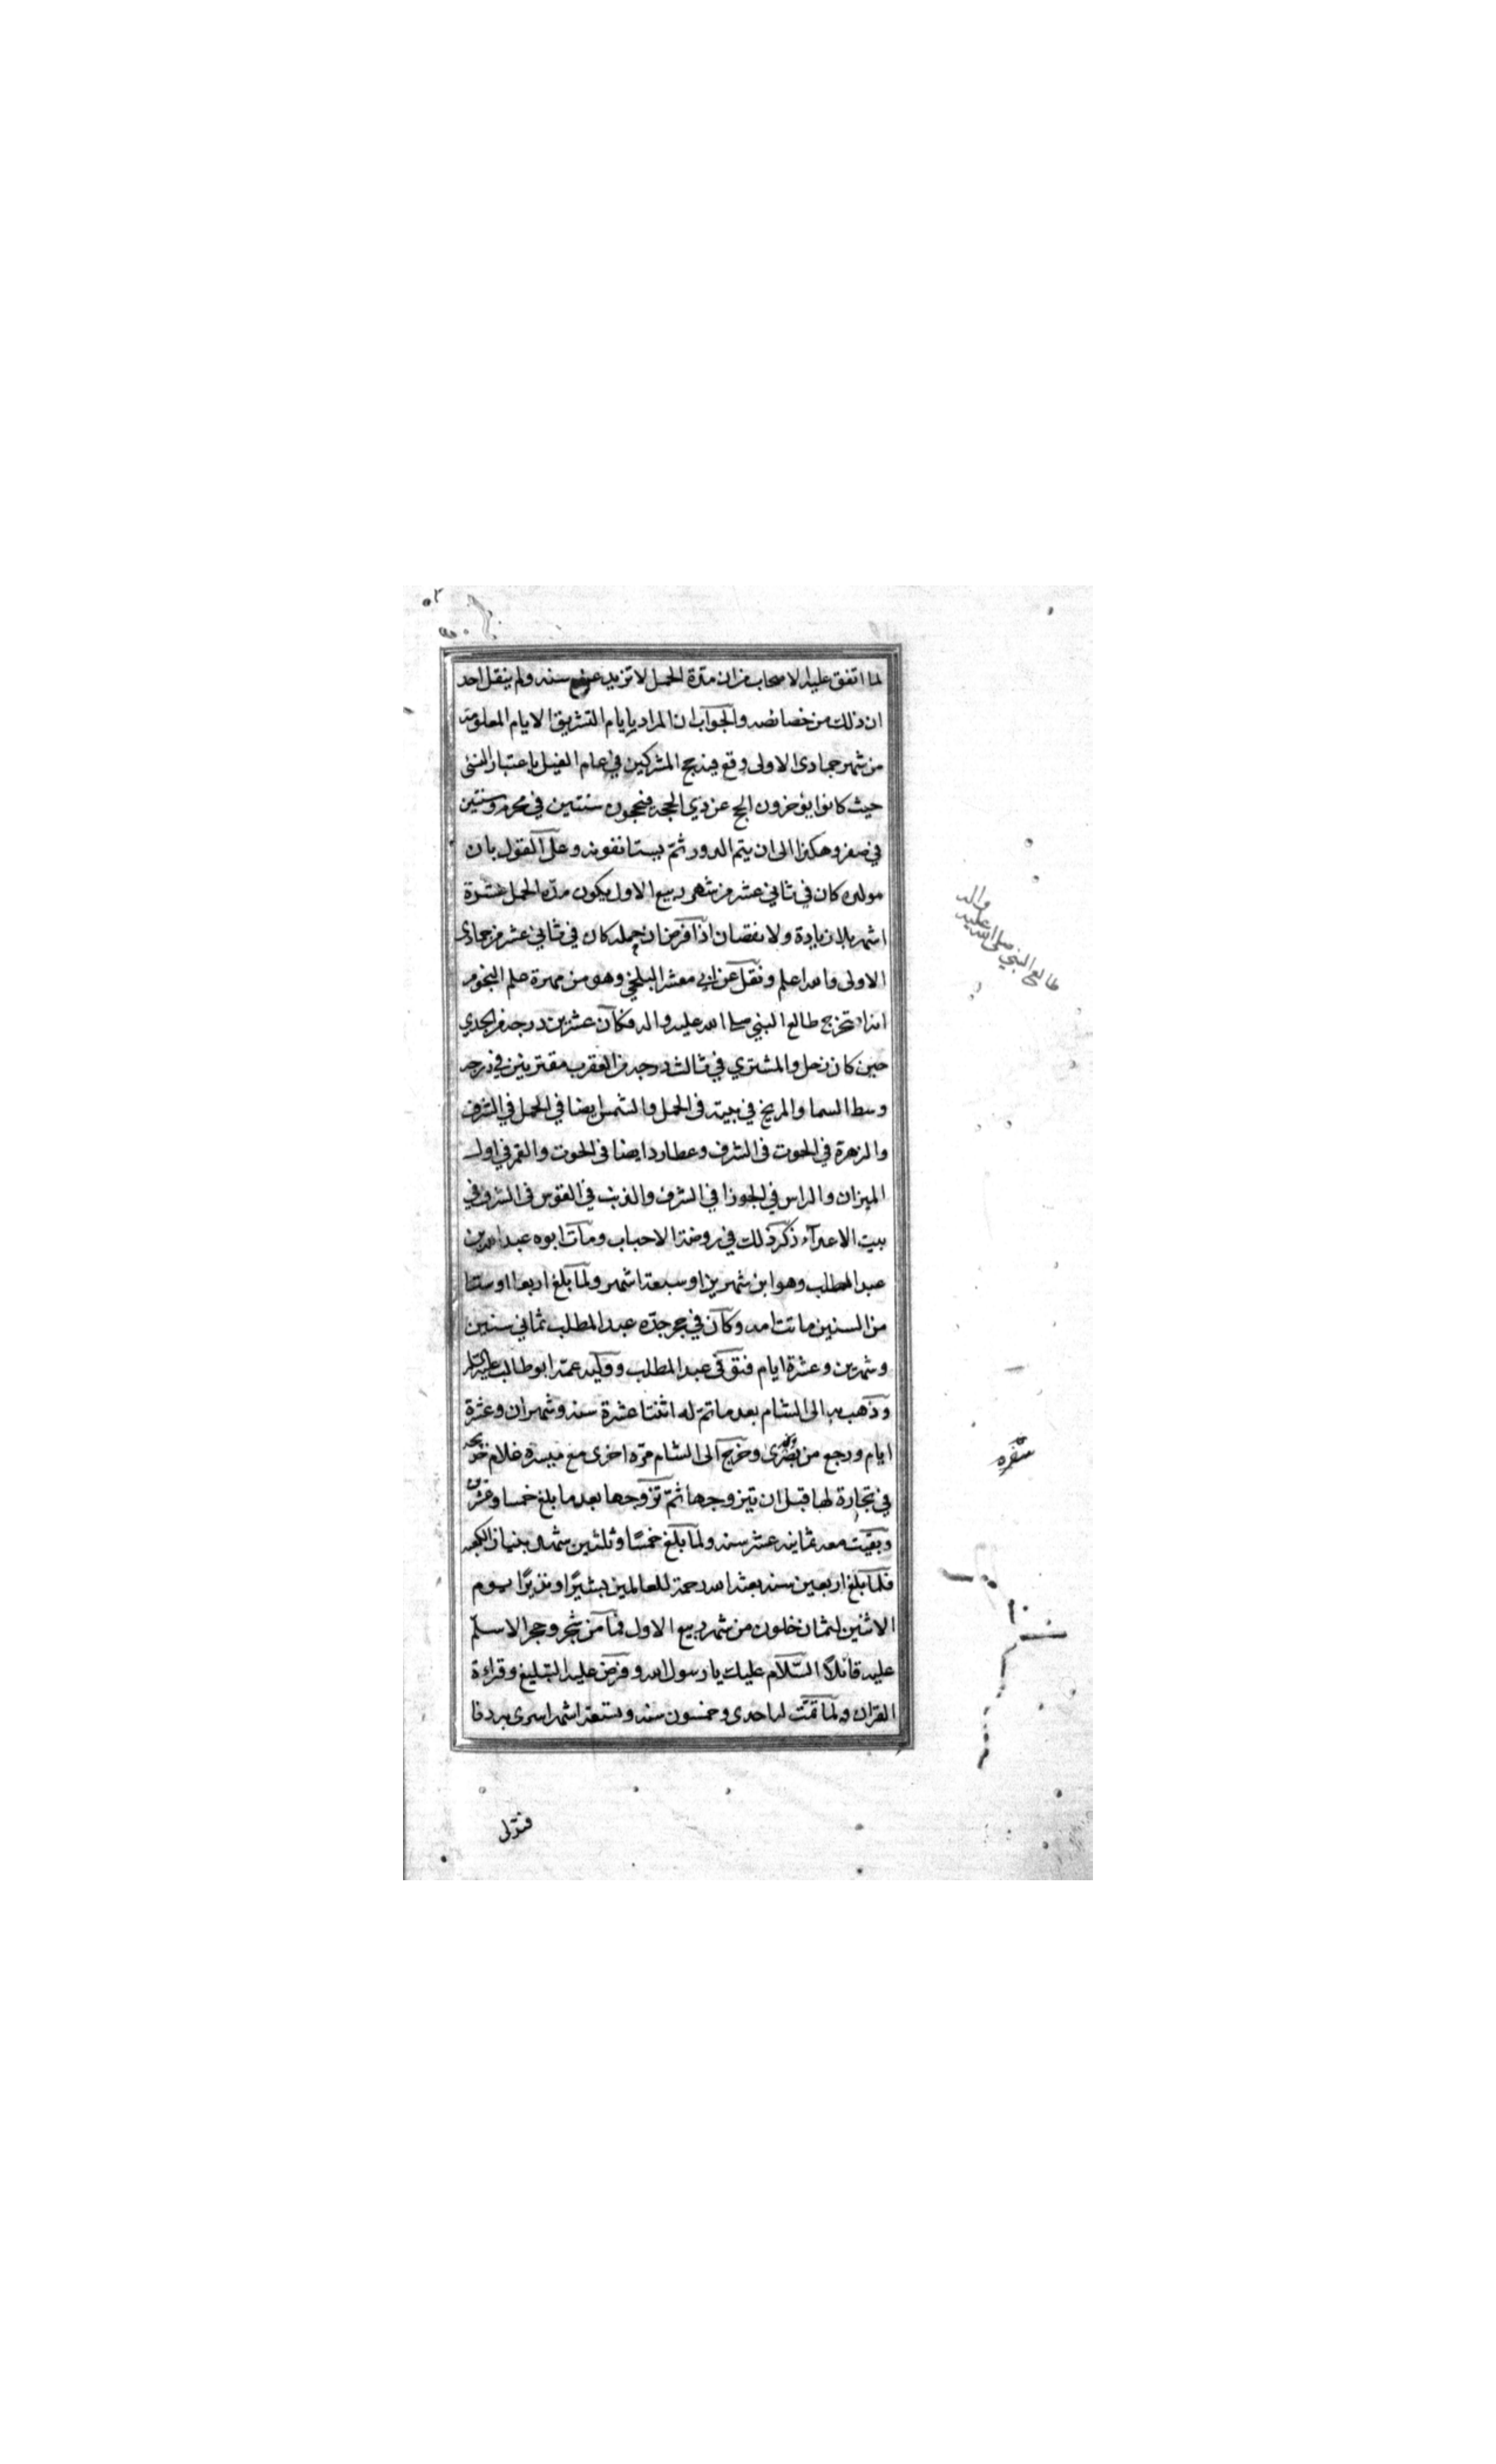 لما اتفق عليه الاصحاب من ان مدة الحمل لا تزيد عن سنه ولم ينقل احد
ان ذلك من خصائصه والجواب ان المراد بايام التشريق الايام المعلومة
من شهر جمادى الاولى وقع فيه حج المشركين في عام الفيل باعتبار النسئ
حيث كانوا يؤخرون الحج عن ذي الحجه فيحجون سنتين في محرم وسنتين
في صفر وهكذا الى ان يتم الدور ثم يستانفونه وعلى القول بان
مولده كان في ثاني عشر من شهر ربيع الاول يكون مدة الحمل عشرة
اشهر بلا زيادة ولا نقصان اذا فرض ان حمله كان في ثاني عشر من جمادى
الاولى والله اعلم ونقل عن ابي معشر البلخي وهو من مهرة علم النجوم
انه استخرج طالع النبي صلى الله عليه واله فكان عشرين درجه من الجدي
حين كان زحل والمشتري في ثالث درجه من العقرب مقترنين في درجه
وسط السما والمريخ في بيته في الحمل والشمس ايضا في الحمل في الشرف
والزهرة في الحوت في الشرف وعطارد ايضا في الحوت والقمر في اول
الميزان والراس في الجوزا في الشرف والذنب في القوس في الشرف في
بيت الاعداء ذكر ذلك في روضة الاحباب ومات ابوه عبد الله بن
عبد المطلب وهو ابن شهرين او سبعة اشهر ولما بلغ اربعا او ستا
من السنين ماتت امه وكان في حجر جده عبد المطلب ثماني سنين
وشهرين وعشرة ايام فتوفى عبد المطلب ووليه عمه ابو طالب عليه السلام
وذهب به الى الشام بعد ما تم له اثنتا عشرة سنه وشهران وعشرة
ايام ورجع من بصرى وخرج الى الشام مره اخرى مع ميسرة غلام خديجه
في تجارة لها قبل ان يتزوجها ثم تزوجها بعد ما بلغ خمسا وعشرين
وبقيت معه ثمانيه عشر سنه ولما بلغ خمسا وثلثين شهد بنيان الكعبه
فلما بلغ اربعين سنه بعثه الله رحمة للعالمين بشيرا ونذيرا يوم
الاثنين لثمان خلون من شهر ربيع الاول فما من شجر وحجر الا سلم
عليه قائلا السلام عليك يا رسول الله وفرض عليه التبليغ وقراءة
القران ولما تمت له احدى وخمسون سنه وتسعة اشهر اسرى به دفا
طالع النبي صلى الله عليه واله
سفره
فتدلى